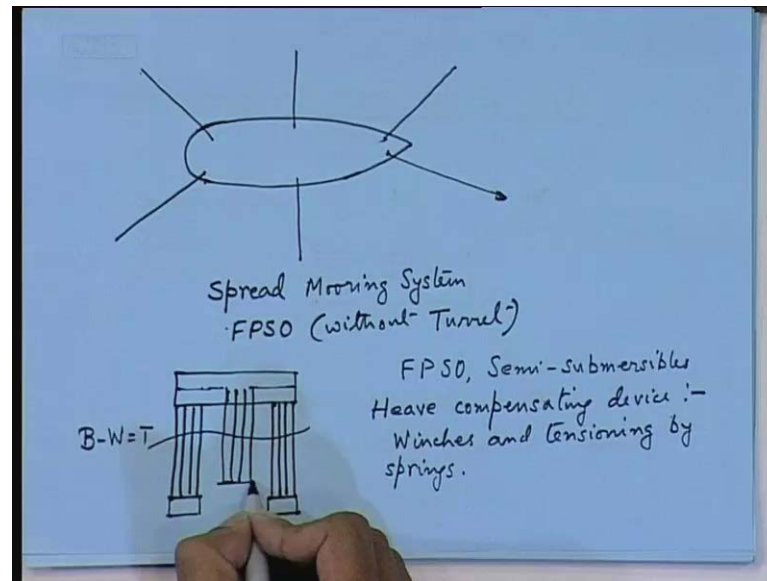 Spread Mooring System
FPSO (without Turret)
FPSO, Semi-submersibles
Heave compensating device :-
Winches and tensioning by
springs.
B-W=T